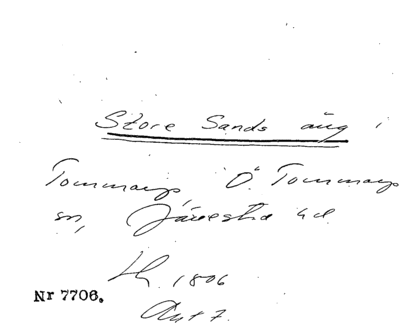 Store Sands äng i
Tommarp, Ö. Tommarp
sn, Järrestad hd.
1806
Nr 7706.
Akt 7.